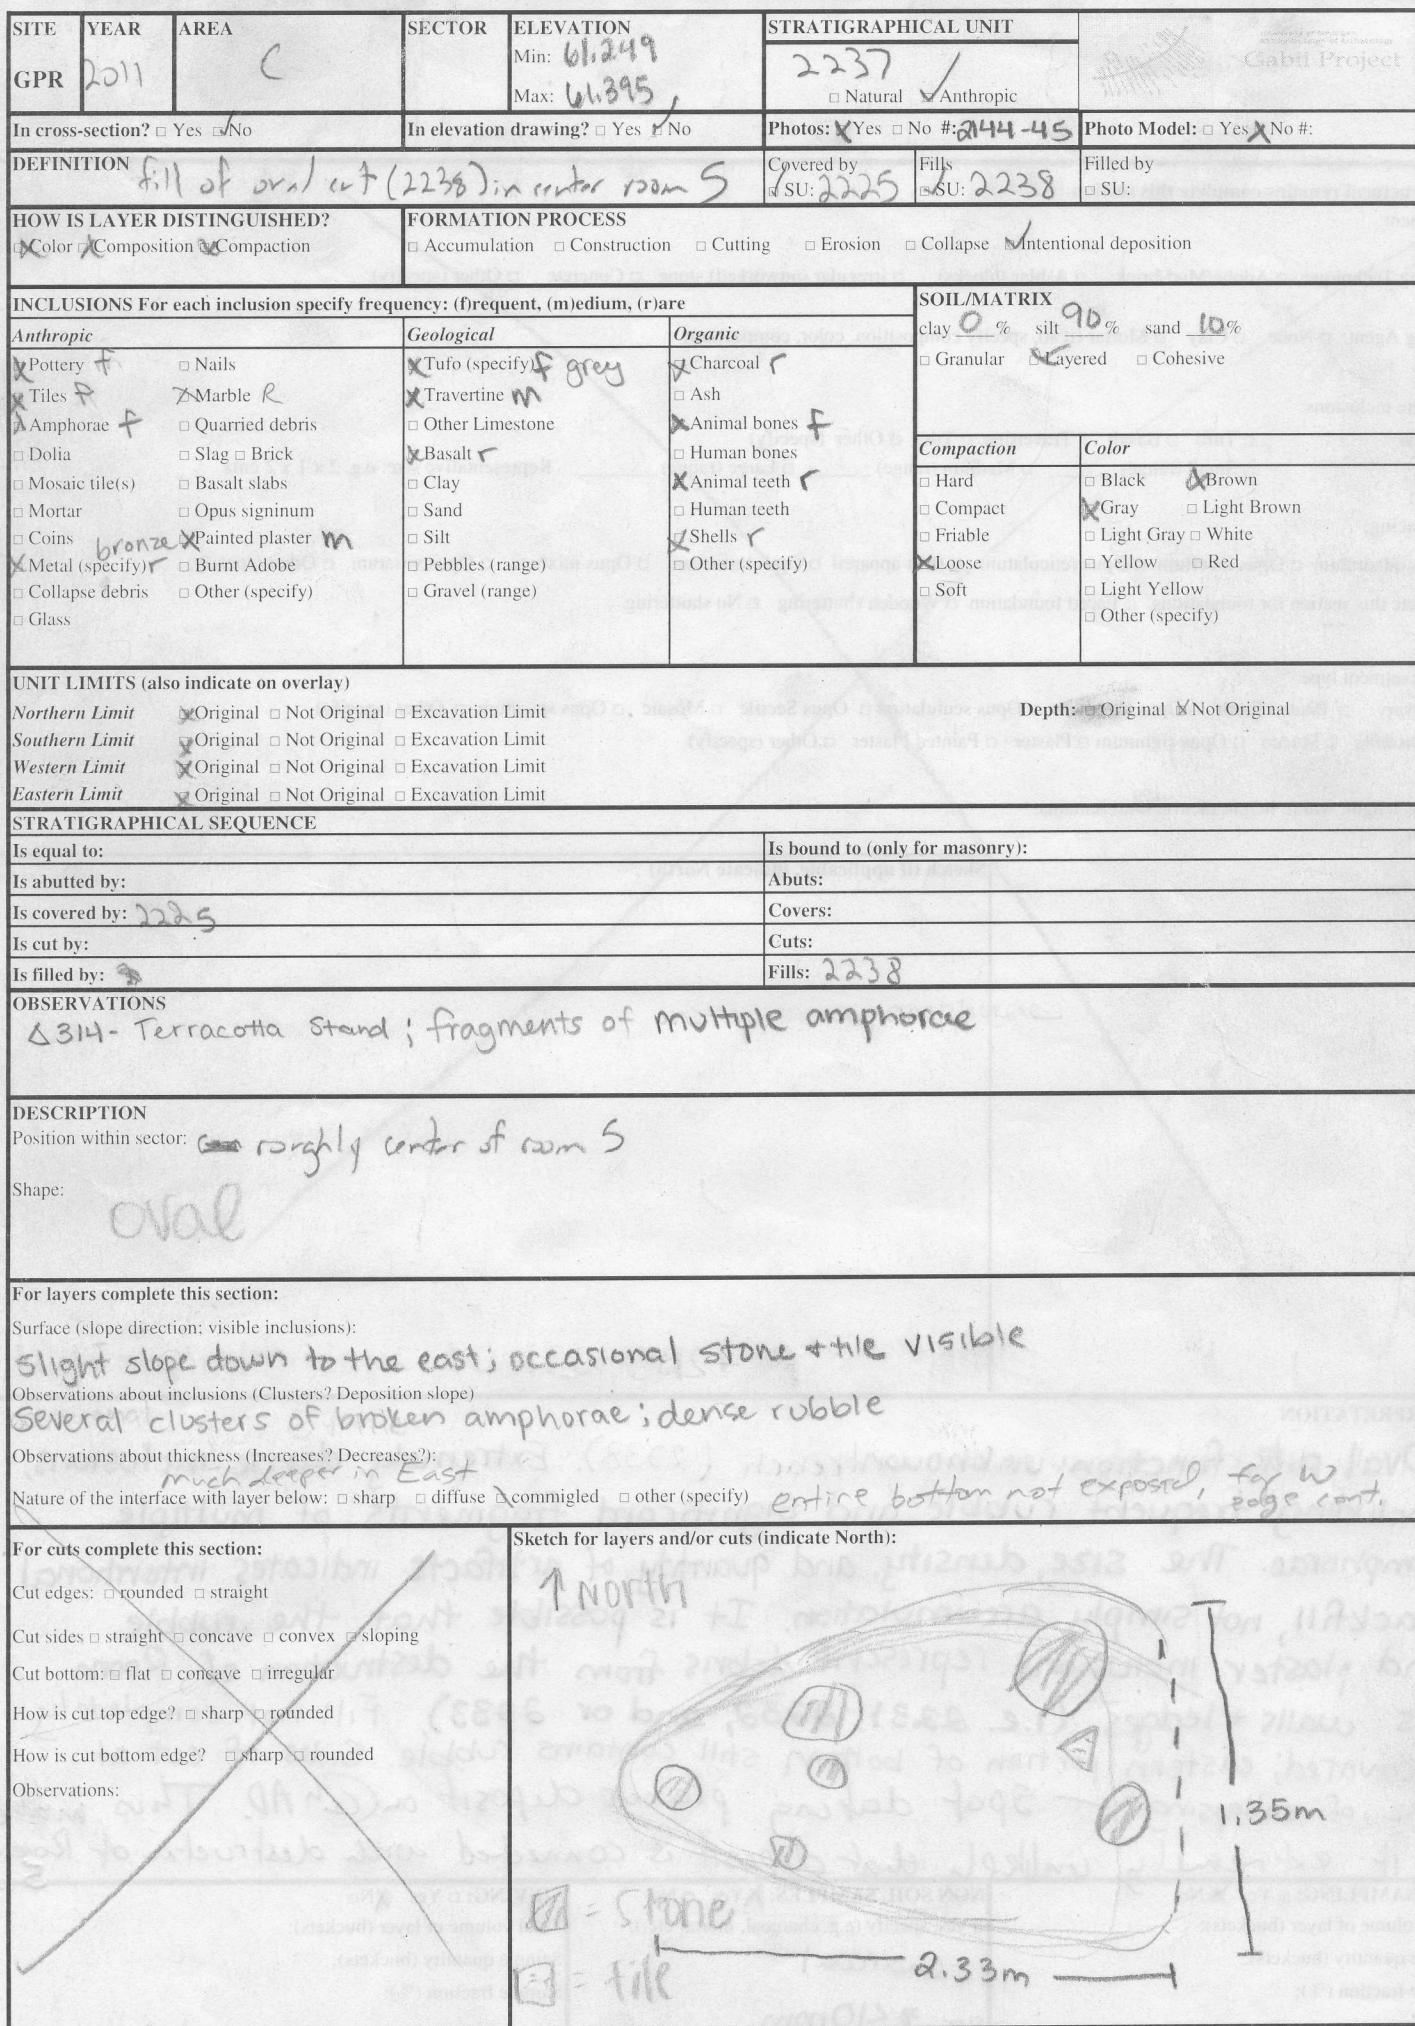 SITE YEAR AREA SECTOR ELEVATION STRATIGRAPHICAL UNIT
GPR 2011 C Min: 61.249 2237
Max: 61.395 □ Natural ☑ Anthropic
Gabii Project
In cross-section? □ Yes ☑ No In elevation drawing? □ Yes ☑ No Photos: ☒ Yes □ No #: 2144-45 Photo Model: □ Yes ☒ No #:
DEFINITION fill of oval cut (2238) in center room 5 Covered by ☑ SU: 2225 Fills ☑ SU: 2238 Filled by □ SU:
HOW IS LAYER DISTINGUISHED? FORMATION PROCESS
☒ Color ☒ Composition ☒ Compaction □ Accumulation □ Construction □ Cutting □ Erosion □ Collapse ☑ Intentional deposition
INCLUSIONS For each inclusion specify frequency: (f)requent, (m)edium, (r)are
Anthropic
☒ Pottery f □ Nails
☒ Tiles f ☒ Marble R
☒ Amphorae f □ Quarried debris
□ Dolia □ Slag □ Brick
□ Mosaic tile(s) □ Basalt slabs
□ Mortar □ Opus signinum
□ Coins ☒ Painted plaster m
bronze
☒ Metal (specify) r □ Burnt Adobe
□ Collapse debris □ Other (specify)
□ Glass
Geological
☒ Tufo (specify) f grey
☒ Travertine m
□ Other Limestone
☒ Basalt r
□ Clay
□ Sand
□ Silt
□ Pebbles (range)
□ Gravel (range)
Organic
☒ Charcoal r
□ Ash
☒ Animal bones f
□ Human bones
☒ Animal teeth r
□ Human teeth
☒ Shells r
□ Other (specify)
SOIL/MATRIX
clay 0 % silt 90 % sand 10 %
□ Granular ☒ Layered □ Cohesive
Compaction
□ Hard
□ Compact
□ Friable
☒ Loose
□ Soft
Color
□ Black ☒ Brown
☒ Gray □ Light Brown
□ Light Gray □ White
□ Yellow □ Red
□ Light Yellow
□ Other (specify)
UNIT LIMITS (also indicate on overlay)
Northern Limit ☒ Original □ Not Original □ Excavation Limit Depth: □ Original ☒ Not Original
Southern Limit ☒ Original □ Not Original □ Excavation Limit
Western Limit ☒ Original □ Not Original □ Excavation Limit
Eastern Limit ☒ Original □ Not Original □ Excavation Limit
STRATIGRAPHICAL SEQUENCE
Is equal to: Is bound to (only for masonry):
Is abutted by: Abuts:
Is covered by: 2225 Covers:
Is cut by: Cuts:
Is filled by: Fills: 2238
OBSERVATIONS
Δ314- Terracotta Stand; fragments of multiple amphorae
DESCRIPTION
Position within sector: roughly center of room 5
Shape:
oval
For layers complete this section:
Surface (slope direction; visible inclusions):
Slight slope down to the east; occasional stone + tile visible
Observations about inclusions (Clusters? Deposition slope)
Several clusters of broken amphorae; dense rubble
Observations about thickness (Increases? Decreases?):
much deeper in East
Nature of the interface with layer below: □ sharp □ diffuse ☒ commigled □ other (specify) entire bottom not exposed, for W
edge cont.
For cuts complete this section:
Cut edges: □ rounded □ straight
Cut sides □ straight □ concave □ convex □ sloping
Cut bottom: □ flat □ concave □ irregular
How is cut top edge? □ sharp □ rounded
How is cut bottom edge? □ sharp □ rounded
Observations:
Sketch for layers and/or cuts (indicate North):
↑ North
1.35m
= Stone
2.33m
= tile